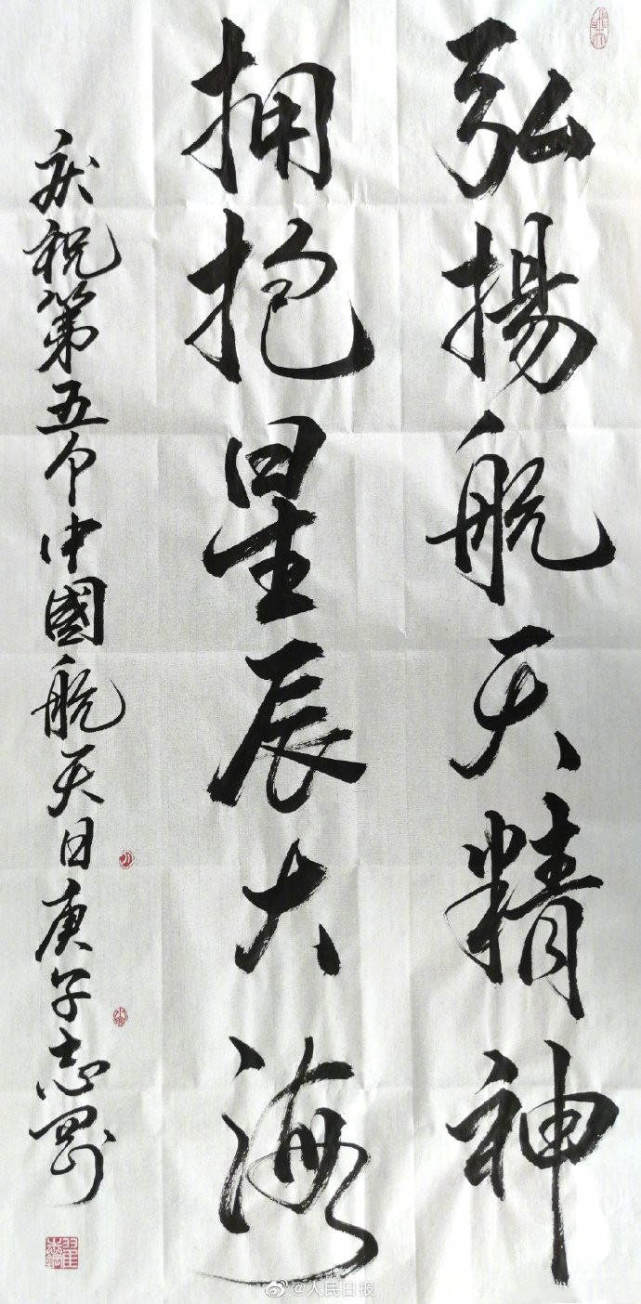 弘揚航天精神
拥抱星辰大海
庆祝第五个中國航天日庚子志剛
@人民日报